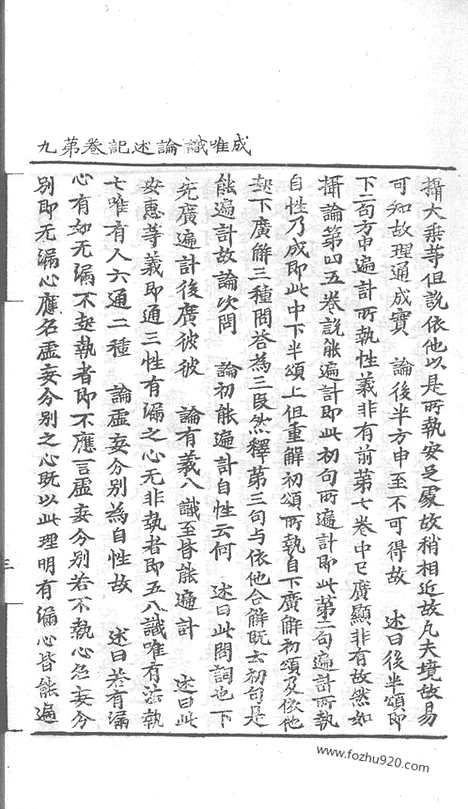 成唯識論述記卷第九
攝大乘等但說依他以是所執安足處故稍相近故凡夫境故易
可知故理通成實　論後半方申至不可得故　述曰後半頌即
下二句方申遍計所執性義非有前第七卷中已廣顯非有故然如
攝論第四五卷說能遍計即此初句所遍計即此第二句遍計所執
自性乃成即此中下半頌上但重解初頌所執自下廣解初頌及依他
起下廣解三種問答為三段然釋第三句與依他合解既云初句是
能遍計故論次問　論初能遍計自性云何　述曰此問詞也下
充廣遍計後廣彼彼　論有義八識至皆能遍計　述曰此
安惠等義即通三性有漏之心无非執者即五八識唯有法執
七唯有人六通二種　論虛妄分別為自性故　述曰若有漏
心有如无漏不起執者即不應言虛妄分別若不執心名妄分
別即无漏心應名虛妄分別之心既以此理明有漏心皆能遍
三
www.fozhu920.com